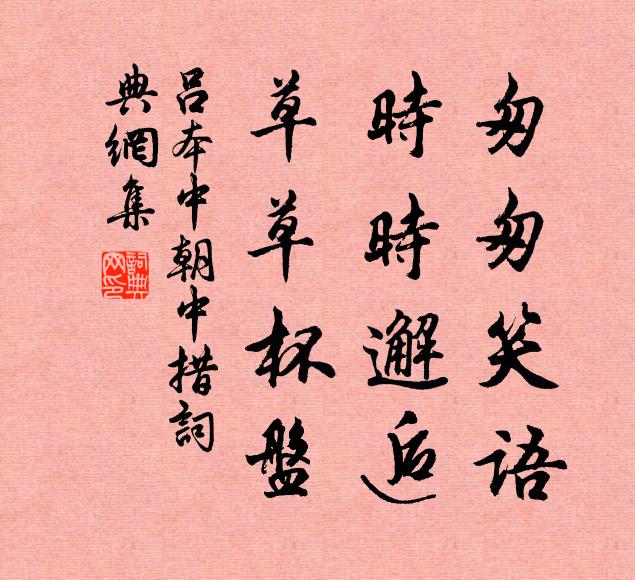 匆匆笑語
時時邂逅
草草杯盤
呂本中朝中措詞
典網集
詞典網印